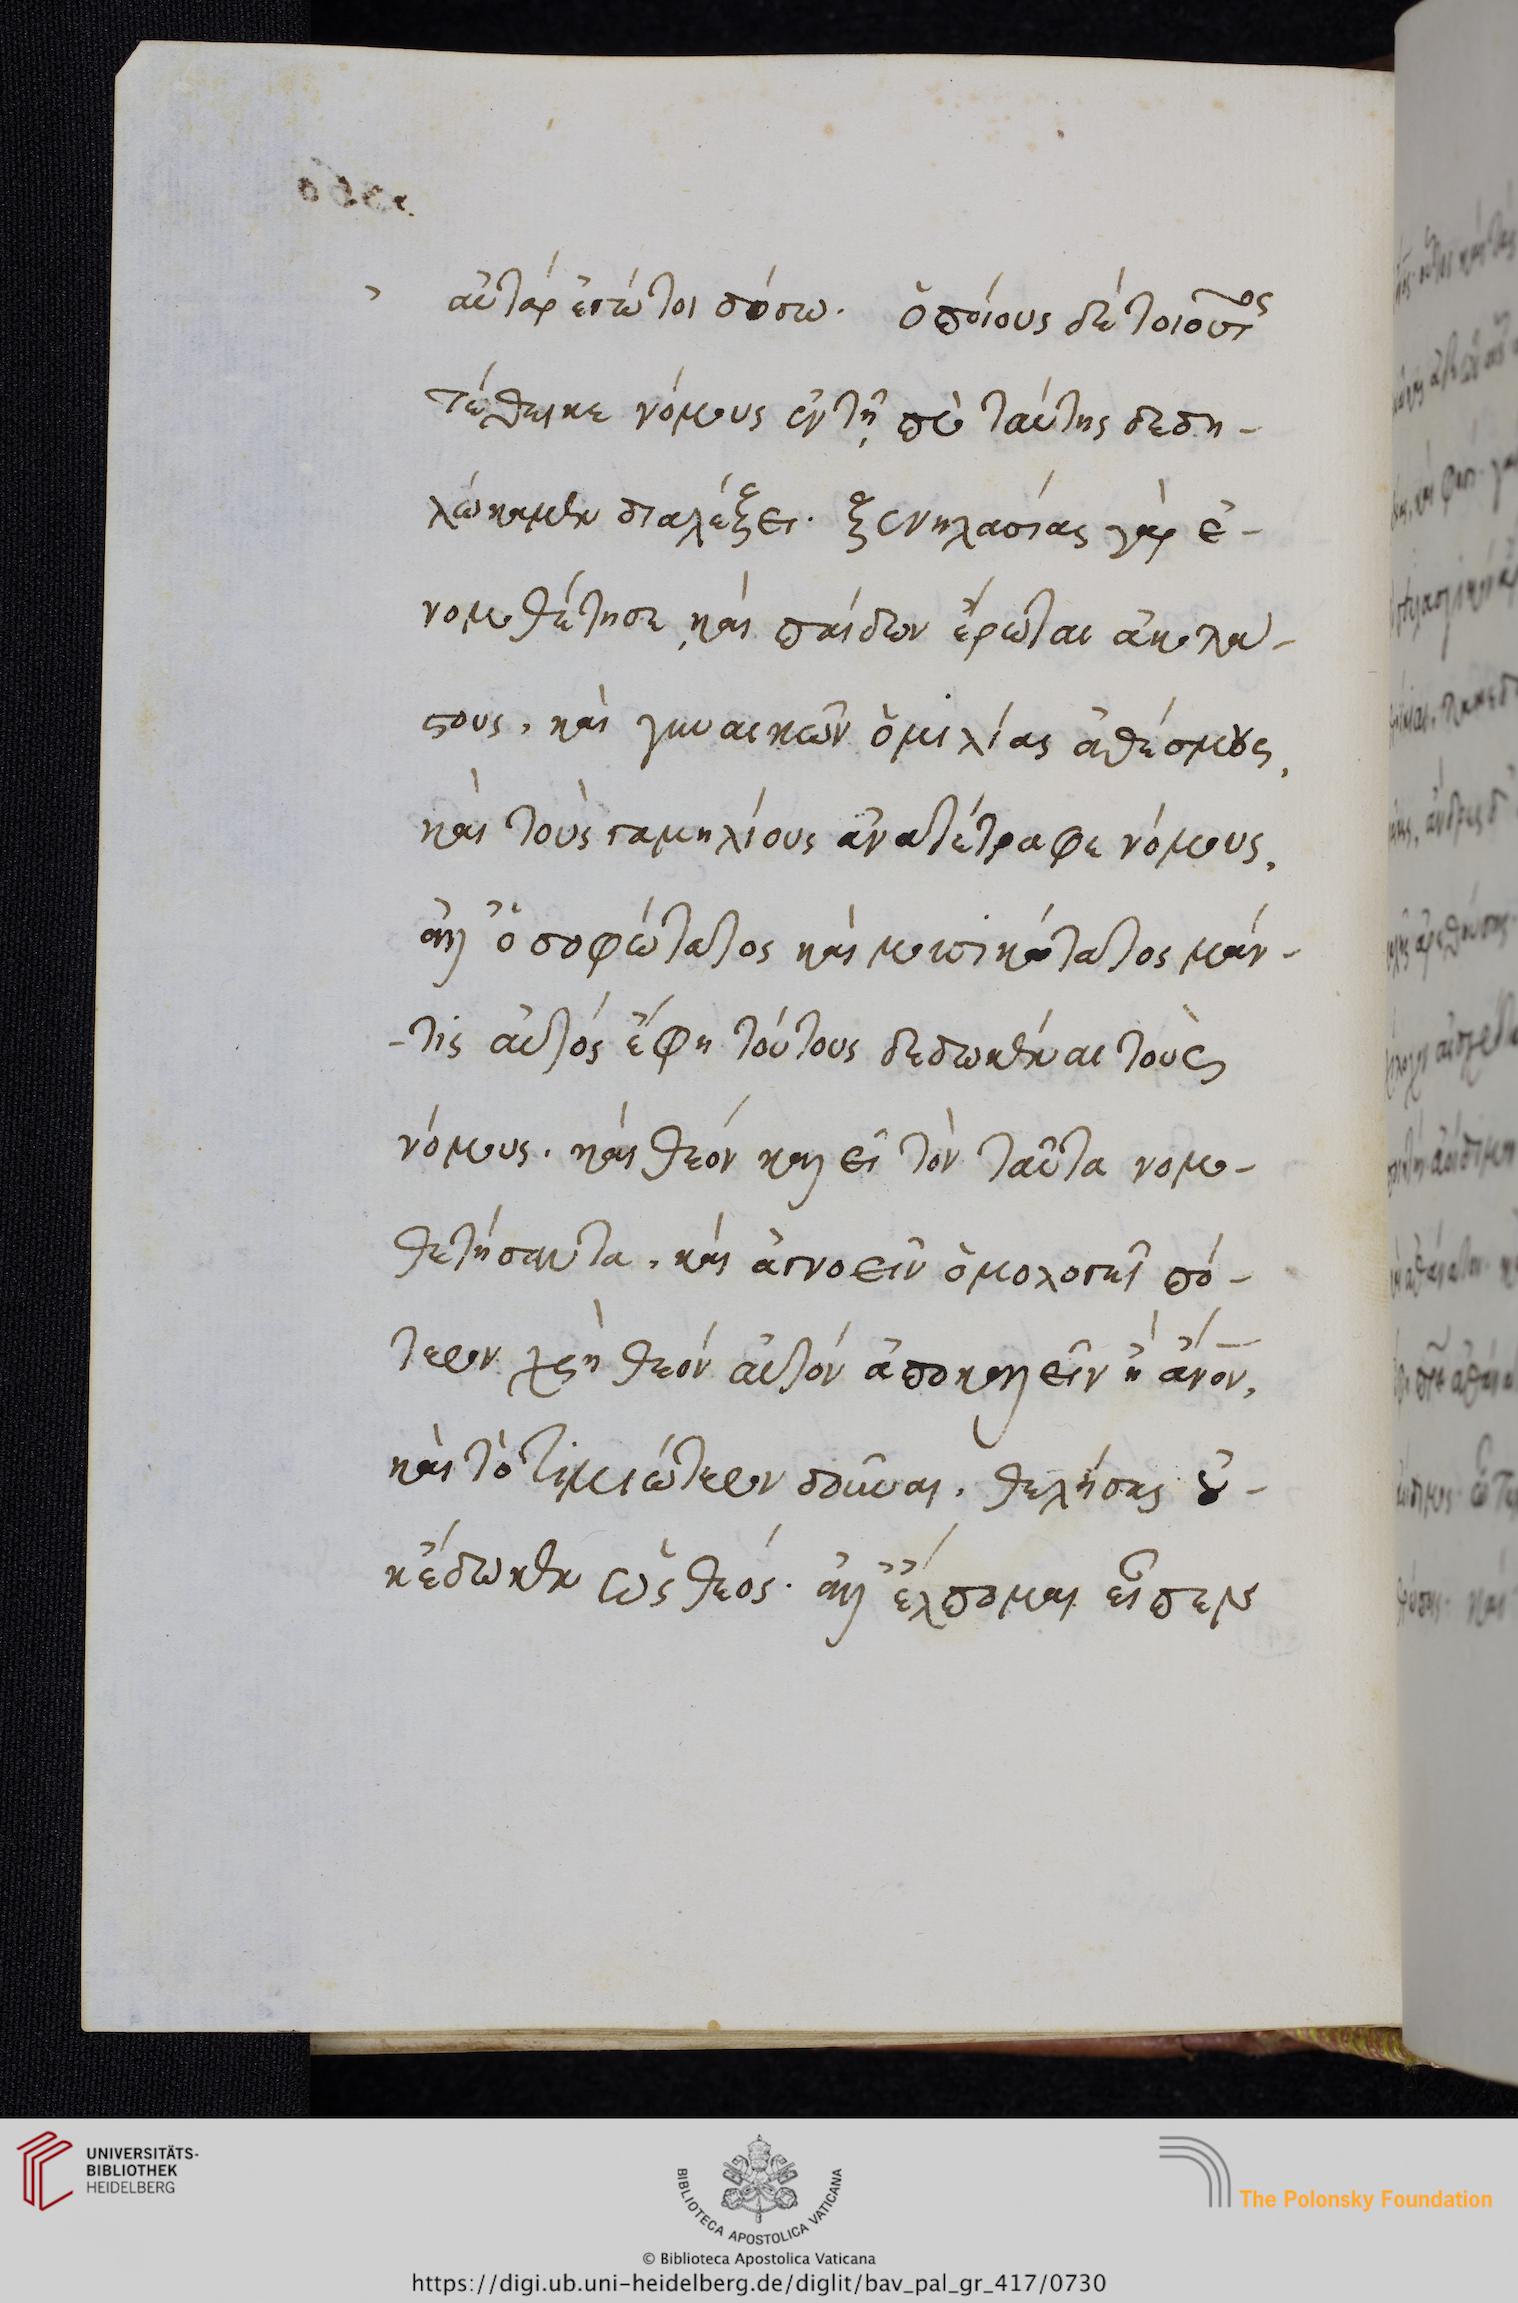 αὐτὰρ ἐγώ τοι δώσω. ὁποίους δέ τοι οὗτος
τέθεικε νόμους ἐν τῇ πρὸ ταύτης δεδη-
λώκαμεν διαλέξει. ξενηλασίας γὰρ ἐ-
νομοθέτησε, καὶ παίδων ἔρωτας ἀκολά-
στους, καὶ γυναικῶν ὁμιλίας ἀθέσμους,
καὶ τοὺς γαμηλίους ἀνατέτραφε νόμους,
ἀλλ' ὁ σοφώτατος καὶ μουσικώτατος μάν-
-τις αὐτός ἔφη τούτους δεδωκέναι τοὺς
νόμους. καὶ θεόν καλεῖ τὸν ταῦτα νομο-
θετήσαντα, καὶ ἀγνοεῖν ὁμολογεῖ πό-
τερον χρὴ θεόν αὐτόν ἀποκαλεῖν ἢ ἄνον,
καὶ τὸ τιμιώτερον δοῦναι, θελήσας οὐ-
κ ἔδωκεν ὡς θεός. ἀλλ' ἔλπομαι εἴπερ
UNIVERSITÄTS-
BIBLIOTHEK
HEIDELBERG
BIBLIOTECA APOSTOLICA VATICANA
The Polonsky Foundation
© Biblioteca Apostolica Vaticana
https://digi.ub.uni-heidelberg.de/diglit/bav_pal_gr_417/0730